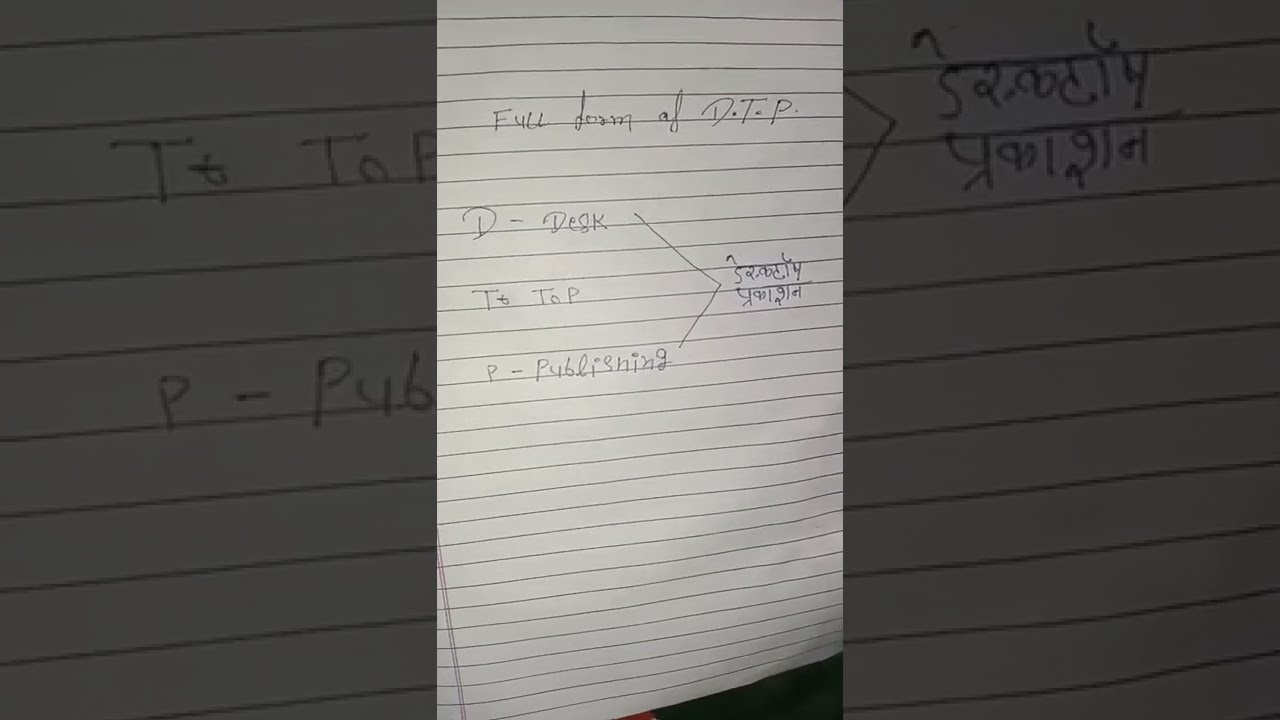 Full form of D.T.P.
D - Desk
T - Top
डेस्कटॉप
प्रकाशन
P - Publishing